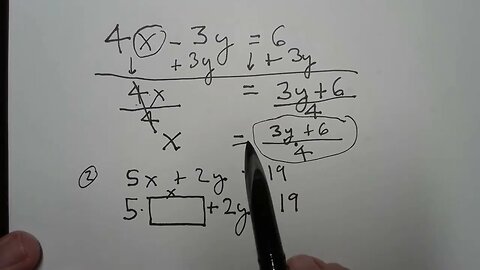 4x - 3y = 6
+ 3y + 3y
4x/4 = 3y + 6/4
x = 3y + 6/4
② 5x + 2y 19
x
5 · + 2y 19